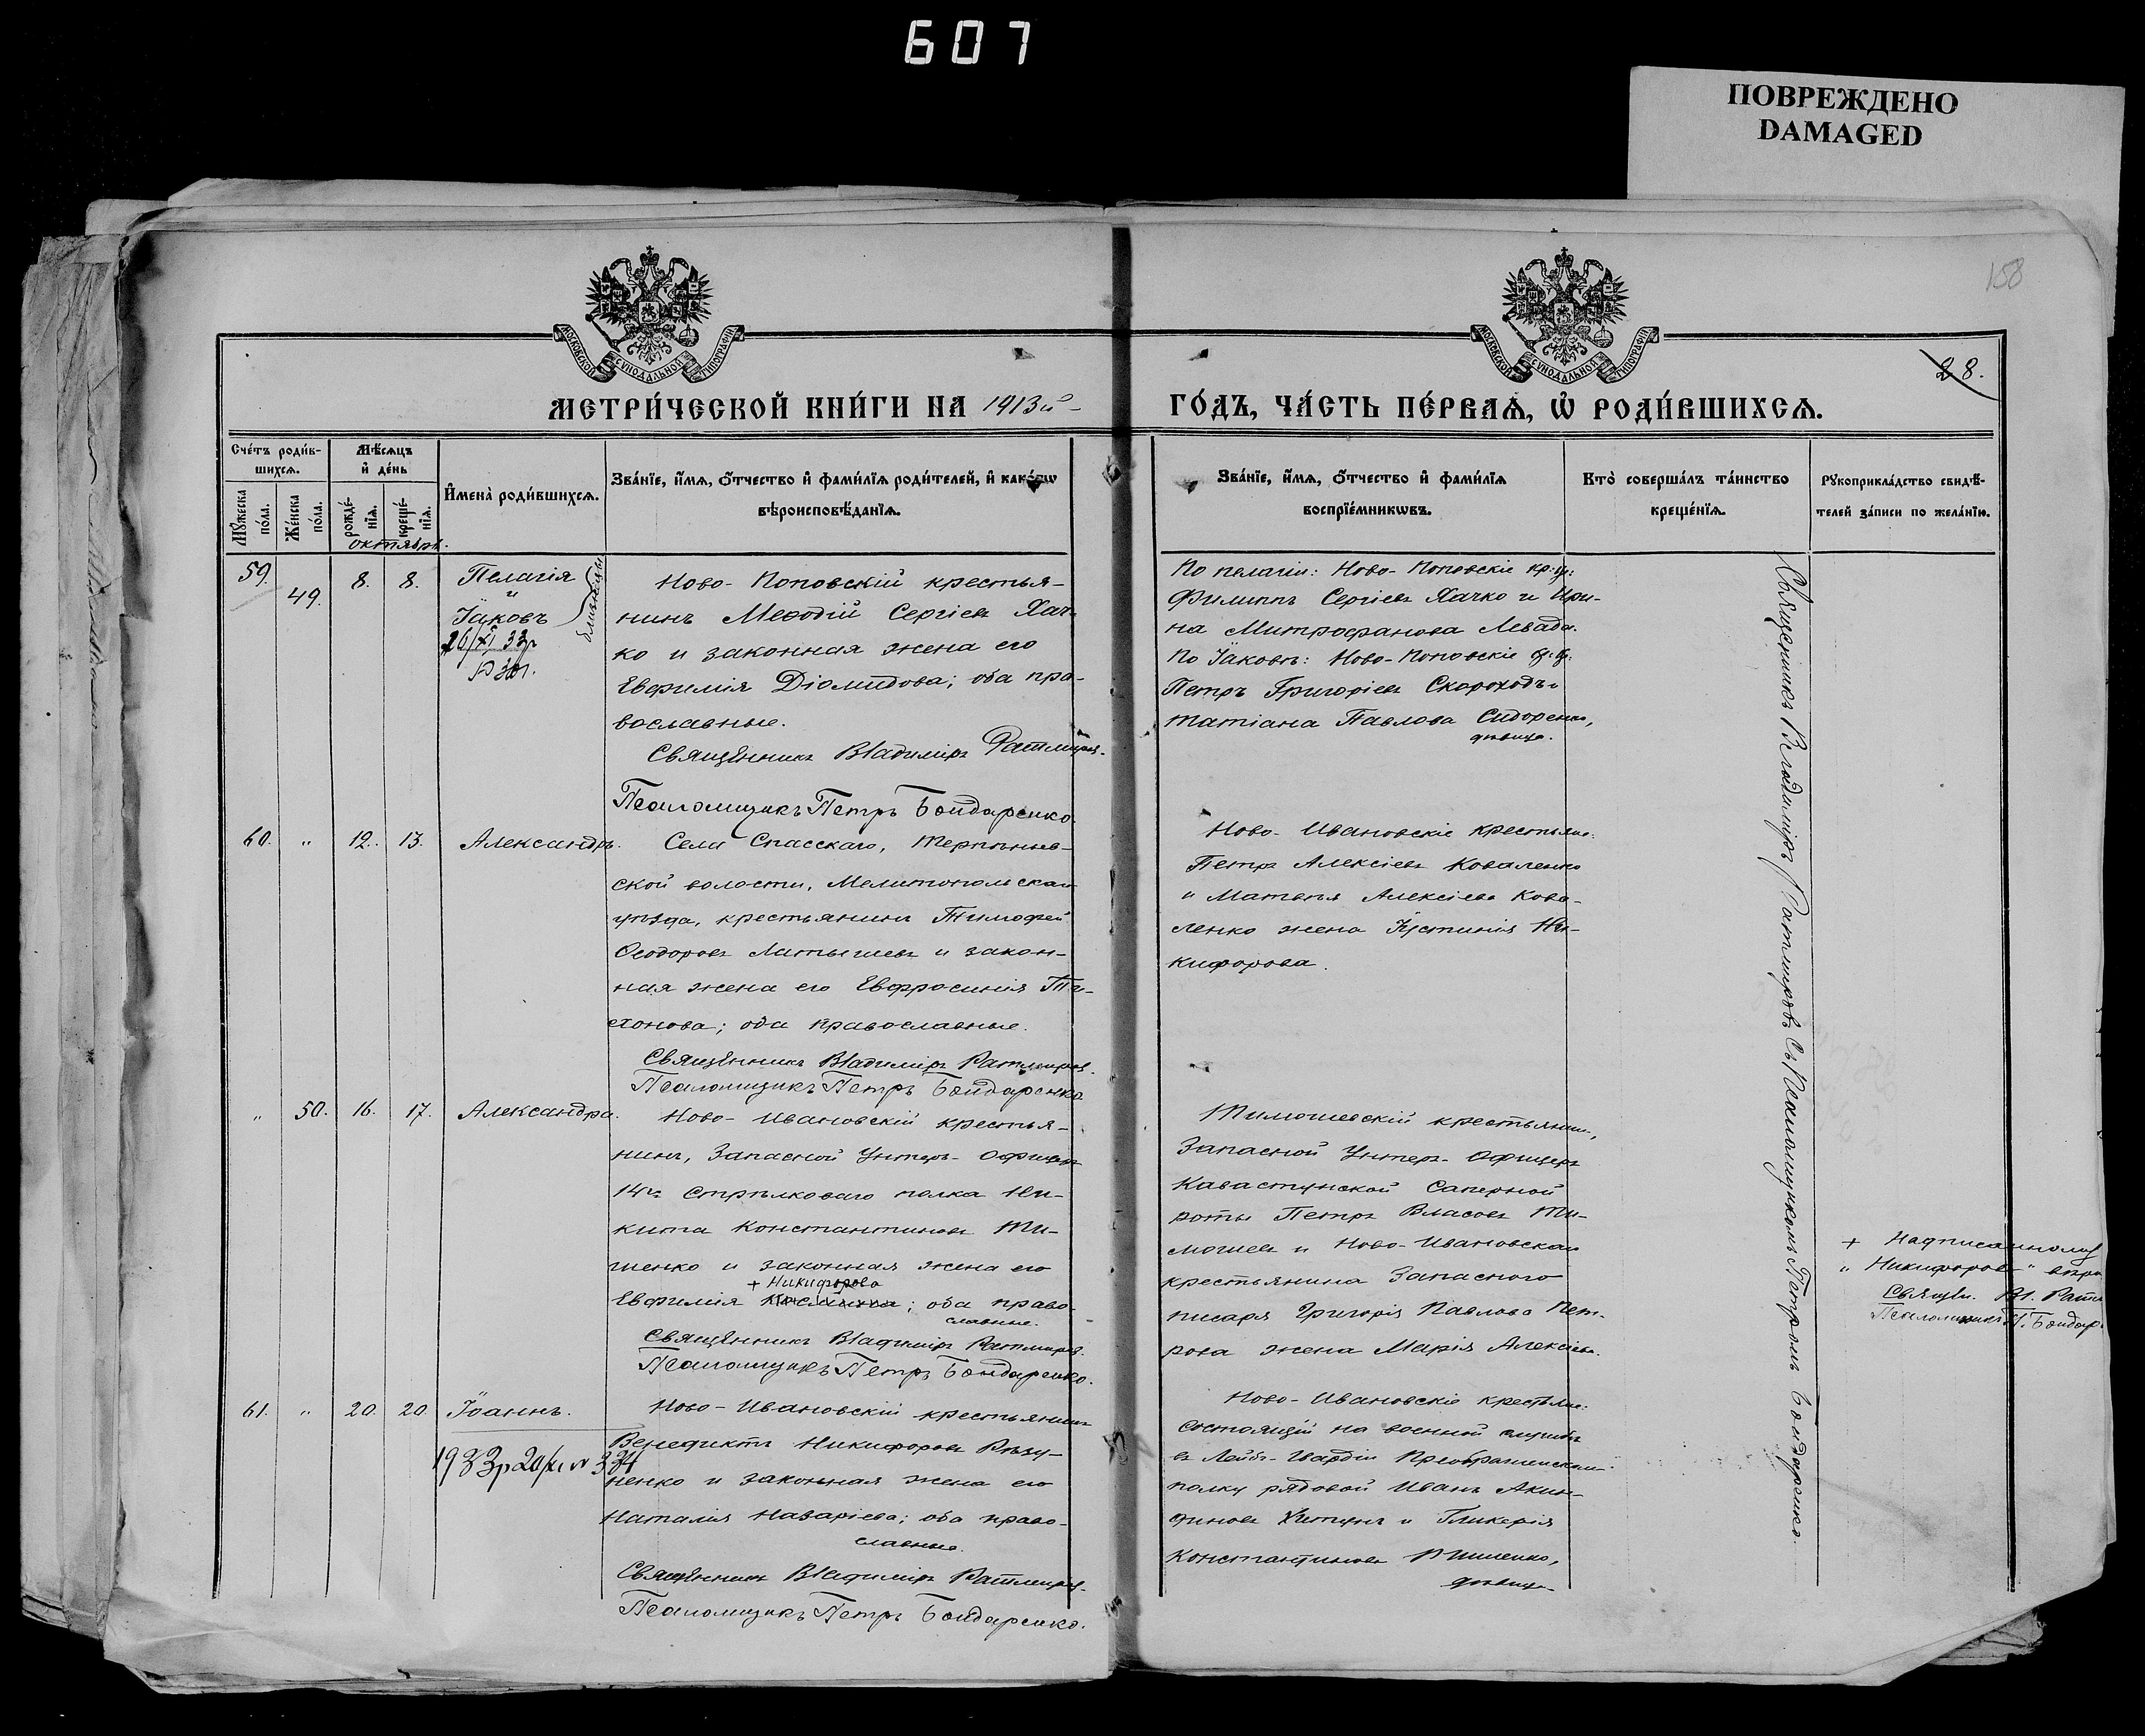 607
ПОВРЕЖДЕНО
DAMAGED
158
МОСКОВСКОЙ СѴНОДАЛЬНОЙ ТИПОГРАФІИ
МОСКОВСКОЙ СѴНОДАЛЬНОЙ ТИПОГРАФІИ
28.
МЕТРИ́ЧЕСКОЙ КНИ́ГИ НА 1913й
ГО́ДЪ, ЧА́СТЬ ПЕ́РВАѦ, Ѡ҆ РОДИ́ВШИХСѦ.
Сче́тъ роди́в-
шихсѧ.
Мѣ́сѧцъ
и҆ де́нь
Мꙋ́жеска
по́ла.
Же́нска
по́ла.
рожде́-
нїѧ.
креще́-
нїѧ.
И҆мена̀ роди́вшихсѧ.
Зва́нїе, и҆́мѧ, ѻ҆́тчество и҆ фами́лїѧ роди́телей, и҆ како́гѡ
вѣроисповѣ́данїѧ.
Зва́нїе, и҆́мѧ, ѻ҆́тчество и҆ фами́лїѧ
воспрїе́мникѡвъ.
Кто̀ соверша́лъ та́инство
креще́нїѧ.
Рꙋкоприкла́дство свидѣ́-
телей за́писи по жела́нїю.
октябрь.
59.
49.
8.
8.
Пелагія
и
Іаковъ
близнецы
Ново-Поповскій крестья-
нинъ Меѳодій Сергіевъ Хач-
ко и законная жена его
Евфимія Діомидова; оба пра-
вославные.
Священникъ Владиміръ Ратмировъ.
Псаломщикъ Петръ Бондаренко.
По пелагіи: Ново-Поповскіе кр:цр:
Филиппъ Сергіевъ Хачко и Ири-
на Митрофанова Левада.
По Іаковъ: Ново-Поповскіе
Петръ Григоріевъ Скороходъ и
Татіана Павлова Сидоренко,
дѣвица.
Священникъ Владиміръ Ратмировъ съ Псаломщикомъ Петромъ Бондаренко.
60.
"
12.
13.
Александръ.
Села Спасскаго, Терпѣніев-
ской волости, Мелитопольскаго
уѣзда, крестьянинъ Тимофей
Ѳеодоровъ Латышевъ и закон-
ная жена его Евфросинія Ти-
хонова; оба православные.
Священникъ Владиміръ Ратмировъ.
Псаломщикъ Петръ Бондаренко
Ново-Ивановскіе крестьяне:
Петръ Алексіевъ Коваленко
и Матвѣя Алексіева Кова-
ленко жена Іустинія Ни-
кифорова.
"
50.
16.
17.
Александра.
Ново-Ивановскій крестья-
нинъ, Запасной Унтеръ-Офицеръ
14го Стрѣлковаго полка Ни-
кита Константиновъ Ти-
шенко и законная жена его
+ Никифорова
Евфимія; оба право-
славные.
Священникъ Владиміръ Ратмировъ.
Псаломщикъ Петръ Бондаренко.
Тимошевскій крестьянинъ,
Запасной Унтеръ-Офицеръ
Саперной
роты Петръ Власовъ Ти-
мошевъ и Ново-Ивановскаго
крестьянина Запаснаго
писаря Григорія Павлова Пет-
рова жена Марія Алексіева.
+ Надписанному
"Никифорова" вѣри
Священ. Вл. Ратм
Псаломщикъ П. Бондар
61.
"
20.
20.
Іоаннъ.
Ново-Ивановскій крестьянинъ
Венедиктъ Никифоровъ Рѣзу-
ненко и законная жена его
Наталія Назаріева; оба право-
славные.
Священникъ Владиміръ Ратмировъ.
Псаломщикъ Петръ Бондаренко.
Ново-Ивановскіе крестьяне:
состоящій на военной службѣ
въ Лейбъ-Гвардіи Преображенскомъ
полку рядовой Иванъ Акин-
финовъ и Гликерія
Константинова Тишенко,
дѣвица.